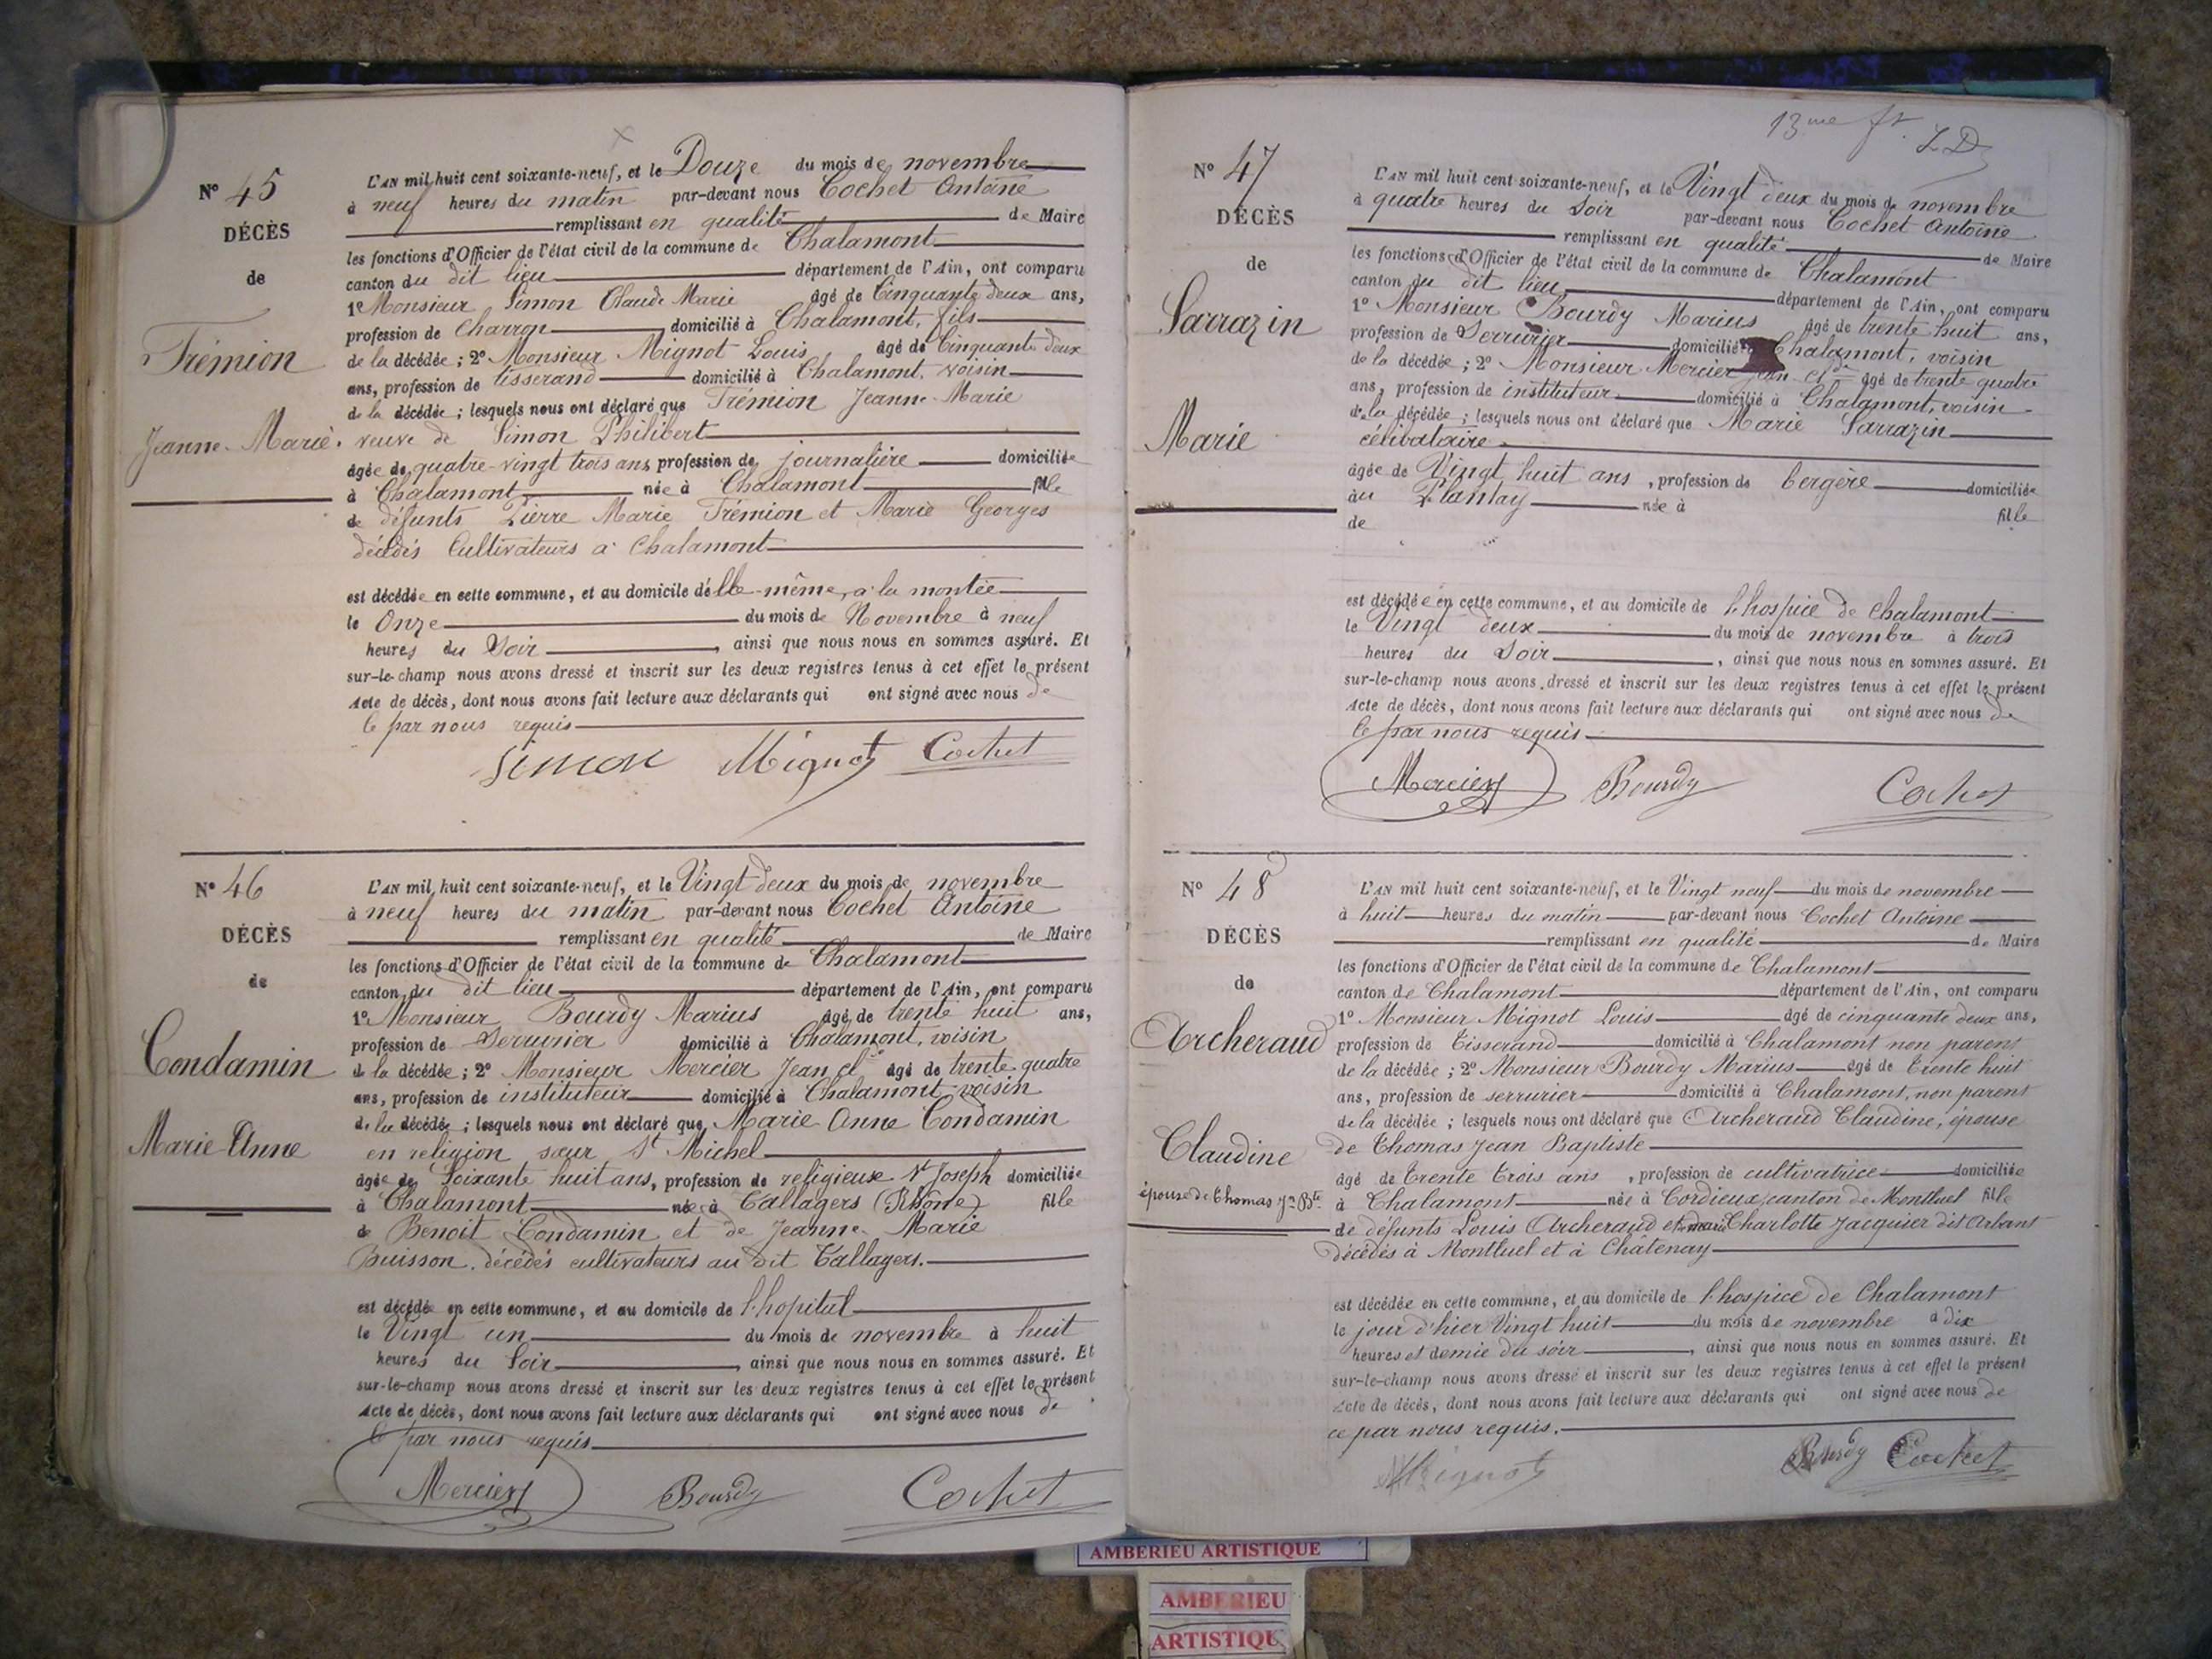 N° 45
DÉCÈS
de
Trémion
Jeanne-Marie
L'AN mil huit cent soixante-neuf, et le Douze du mois de novembre
à neuf heures du matin par-devant nous Cochet Antoine
remplissant en qualité de Maire
les fonctions d'Officier de l'état civil de la commune de Chalamont
canton du dit lieu département de l'Ain, ont comparu
1° Monsieur Simon Claude Marie âgé de Cinquante deux ans,
profession de Charron domicilié à Chalamont, fils
de la décédée ; 2° Monsieur Mignot Louis âgé de Cinquante deux
ans, profession de tisserand domicilié à Chalamont, voisin
de la décédée ; lesquels nous ont déclaré que Trémion Jeanne-Marie
veuve de Simon Philibert
âgée de quatre-vingt trois ans profession de journalière domiciliée
à Chalamont née à Chalamont fille
de défunts Pierre Marie Trémion et Marie Georges
décédés Cultivateurs à Chalamont
est décédée en cette commune, et au domicile d'elle-même, à la montée
le Onze du mois de Novembre à neuf
heures du Soir, ainsi que nous nous en sommes assuré. Et
sur-le-champ nous avons dressé et inscrit sur les deux registres tenus à cet effet le présent
Acte de décès, dont nous avons fait lecture aux déclarants qui ont signé avec nous de
ce par nous requis
Simon Mignot Cochet
N° 46
DÉCÈS
de
Condamin
Marie-Anne
L'AN mil huit cent soixante-neuf, et le Vingt deux du mois de novembre
à neuf heures du matin par-devant nous Cochet Antoine
remplissant en qualité de Maire
les fonctions d'Officier de l'état civil de la commune de Chalamont
canton du dit lieu département de l'Ain, ont comparu
1° Monsieur Bourdy Marius âgé de trente huit ans,
profession de Serrurier domicilié à Chalamont, voisin
de la décédée ; 2° Monsieur Mercier Jean Cl^de âgé de trente quatre
ans, profession de instituteur domicilié à Chalamont, voisin
de la décédée ; lesquels nous ont déclaré que Marie Anne Condamin
en religion sœur S^t Michel
âgée de Soixante huit ans, profession de religieuse S^t Joseph domiciliée
à Chalamont née à Tallagers (Rhône) fille
de Benoit Condamin et de Jeanne-Marie
Buisson, décédés cultivateurs au dit Tallagers.
est décédée en cette commune, et au domicile de l'hopital
le Vingt un du mois de novembre à huit
heures du Soir, ainsi que nous nous en sommes assuré. Et
sur-le-champ nous avons dressé et inscrit sur les deux registres tenus à cet effet le présent
Acte de décès, dont nous avons fait lecture aux déclarants qui ont signé avec nous de
ce par nous requis
Mercier Bourdy Cochet
13^me f^t.
N° 47
DÉCÈS
de
Sarrazin
Marie
L'AN mil huit cent soixante-neuf, et le Vingt deux du mois de novembre
à quatre heures du Soir par-devant nous Cochet Antoine
remplissant en qualité de Maire
les fonctions d'Officier de l'état civil de la commune de Chalamont
canton du dit lieu département de l'Ain, ont comparu
1° Monsieur Bourdy Marius âgé de trente huit ans,
profession de Serrurier domicilié à Chalamont, voisin
de la décédée ; 2° Monsieur Mercier Jean Cl^de âgé de trente quatre
ans, profession de instituteur domicilié à Chalamont, voisin
de la décédée ; lesquels nous ont déclaré que Marie Sarrazin
célibataire
âgée de Vingt huit ans, profession de bergère domiciliée
au Plantay née à fille
de
est décédée en cette commune, et au domicile de l'hospice de Chalamont
le Vingt deux du mois de novembre à trois
heures du Soir, ainsi que nous nous en sommes assuré. Et
sur-le-champ nous avons dressé et inscrit sur les deux registres tenus à cet effet le présent
Acte de décès, dont nous avons fait lecture aux déclarants qui ont signé avec nous de
ce par nous requis
Mercier Bourdy Cochet
N° 48
DÉCÈS
de
Archeraud
Claudine
épouse de Thomas J^n B^te
L'AN mil huit cent soixante-neuf, et le Vingt neuf du mois de novembre
à huit heures du matin par-devant nous Cochet Antoine
remplissant en qualité de Maire
les fonctions d'Officier de l'état civil de la commune de Chalamont
canton de Chalamont département de l'Ain, ont comparu
1° Monsieur Mignot Louis âgé de cinquante deux ans,
profession de Tisserand domicilié à Chalamont non parent
de la décédée ; 2° Monsieur Bourdy Marius âgé de trente huit
ans, profession de serrurier domicilié à Chalamont, non parent
de la décédée ; lesquels nous ont déclaré que Archeraud Claudine, épouse
de Thomas Jean Baptiste
âgé de Trente Trois ans, profession de cultivatrice domiciliée
à Chalamont née à Cordieux canton de Montluel fille
de défunts Louis Archeraud et marie Charlotte Jacquier dit Arbant
décédés à Montluel et à Châtenay
est décédée en cette commune, et au domicile de l'hospice de Chalamont
le jour d'hier Vingt huit du mois de novembre à dix
heures et demie du soir, ainsi que nous nous en sommes assuré. Et
sur-le-champ nous avons dressé et inscrit sur les deux registres tenus à cet effet le présent
Acte de décès, dont nous avons fait lecture aux déclarants qui ont signé avec nous de
ce par nous requis.
Mignot Bourdy Cochet
AMBERIEU ARTISTIQUE
AMBERIEU
ARTISTIQUE